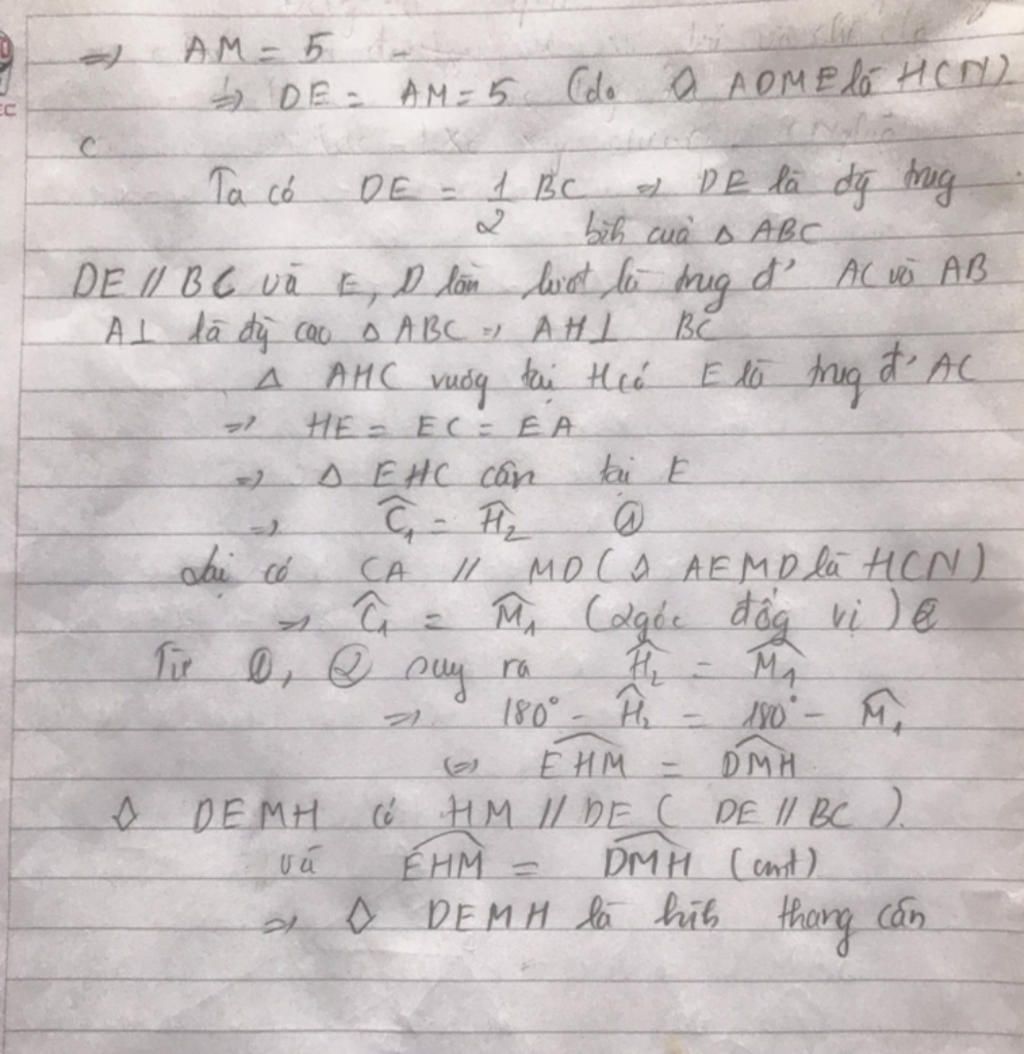 => AM = 5
=> DE = AM = 5 (do ◇ ADME là HCN)
c
Ta có DE = 1/2 BC => DE là đg trug
bìh của Δ ABC
DE // BC và E, D lần lượt là trug đ' AC và AB
A⊥ là đg cao Δ ABC => AH ⊥ BC
Δ AHC vuôg tại H có E là trug đ' AC
=> HE = EC = EA
=> Δ EHC cân tại E
=> Ĉ₁ = Ĥ₂ ①
lại có CA // MD (◇ AEMD là HCN)
=> Ĉ₁ = M̂₁ (2góc đồg vị) ②
Từ ①, ② suy ra Ĥ₂ = M̂₁
=> 180° - Ĥ₂ = 180° - M̂₁
<=> EHM = DMH
◇ DEMH có HM // DE ( DE // BC ).
và EHM = DMH (cmt)
=> ◇ DEMH là hìh thang cân